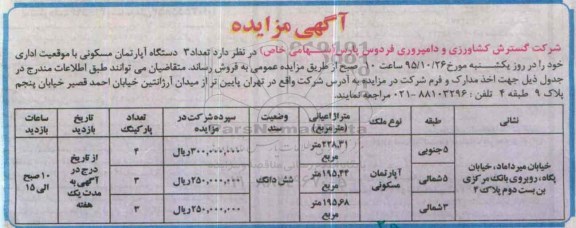 آگهی مزایده
شرکت گسترش کشاورزی و دامپروری فردوس پارس (سهامی خاص) در نظر دارد تعداد ۳ دستگاه آپارتمان مسکونی با موقعیت اداری
خود را در روز یکشنبه مورخ ۹۵/۱۰/۲۶ ساعت ۱۰ صبح از طریق مزایده عمومی به فروش رساند. متقاضیان می توانند طبق اطلاعات مندرج در
جدول ذیل جهت اخذ مدارک و فرم شرکت در مزایده به آدرس شرکت واقع در تهران پایین تر از میدان آرژانتین خیابان احمد قصیر خیابان پنجم
پلاک ۹ طبقه ۴ تلفن : ۸۸۱۰۳۲۹۶-۰۲۱ مراجعه نمایند.
نشانی | طبقه | نوع ملک | متراژ اعیانی (متر مربع) | وضعیت سند | سپرده شرکت در مزایده | تعداد پارکینگ | تاریخ بازدید | ساعات بازدید
خیابان میرداماد، خیابان نگاه، روبروی بانک مرکزی بن بست دوم پلاک ۲ | ۵ جنوبی | آپارتمان مسکونی | ۲۲۸,۳۱ متر مربع | شش دانگ | ۳۰۰,۰۰۰,۰۰۰ ریال | ۴ | از تاریخ درج در آگهی به مدت یک هفته | ۱۰ صبح الی ۱۵
۵ شمالی | ۱۹۵,۴۴ متر مربع | ۲۵۰,۰۰۰,۰۰۰ ریال | ۳
۳ شمالی | ۱۹۵,۶۸ متر مربع | ۲۵۰,۰۰۰,۰۰۰ ریال | ۳